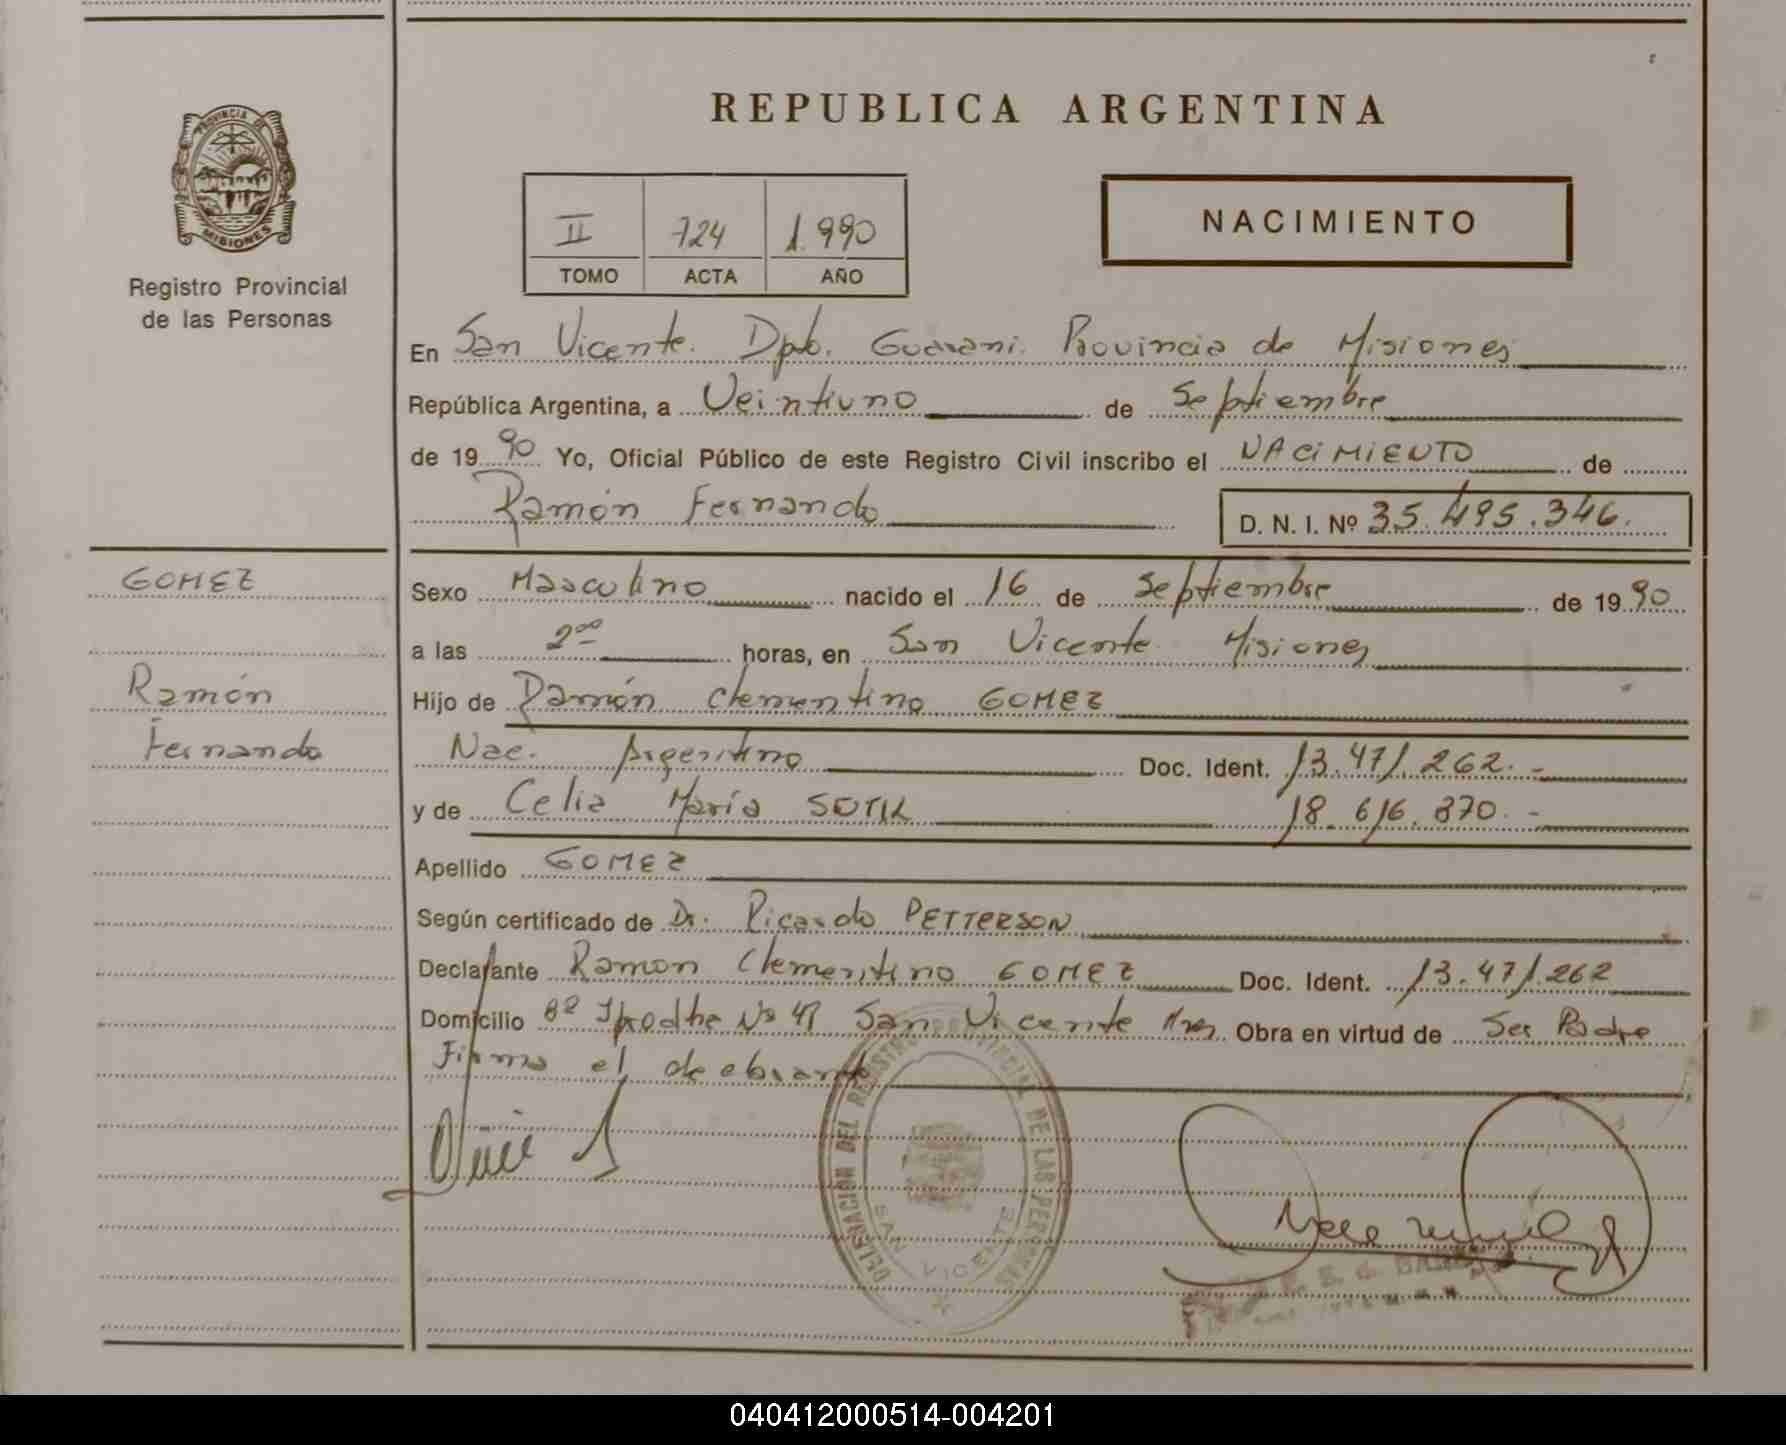 REPUBLICA ARGENTINA
PROVINCIA DE
MISIONES
Registro Provincial
de las Personas
II 724 1.990
TOMO ACTA AÑO
NACIMIENTO
En San Vicente. Dpto. Guarani. Provincia de Misiones
República Argentina, a Veintiuno de Septiembre
de 1990 Yo, Oficial Público de este Registro Civil inscribo el NACIMIENTO de
Ramón Fernando D. N. I. Nº 35.495.346.
GOMEZ
Ramón
Fernando
Sexo Masculino nacido el 16 de Septiembre de 1990
a las 2⁰⁰ horas, en San Vicente Misiones
Hijo de Ramón Clementino GOMEZ
Nac. Argentino Doc. Ident. 13.471.262.-
y de Celia María 18.616.870.-
Apellido GOMEZ
Según certificado de Dr. Ricardo PETTERSON
Declarante Ramon Clementino GOMEZ Doc. Ident. 13.471.262
Domicilio Nº San Vicente Mnes Obra en virtud de Ser Padre
Firma el declarante
DELEGACION DEL REGISTRO PROVINCIAL DE LAS PERSONAS
SAN VICENTE
040412000514-004201